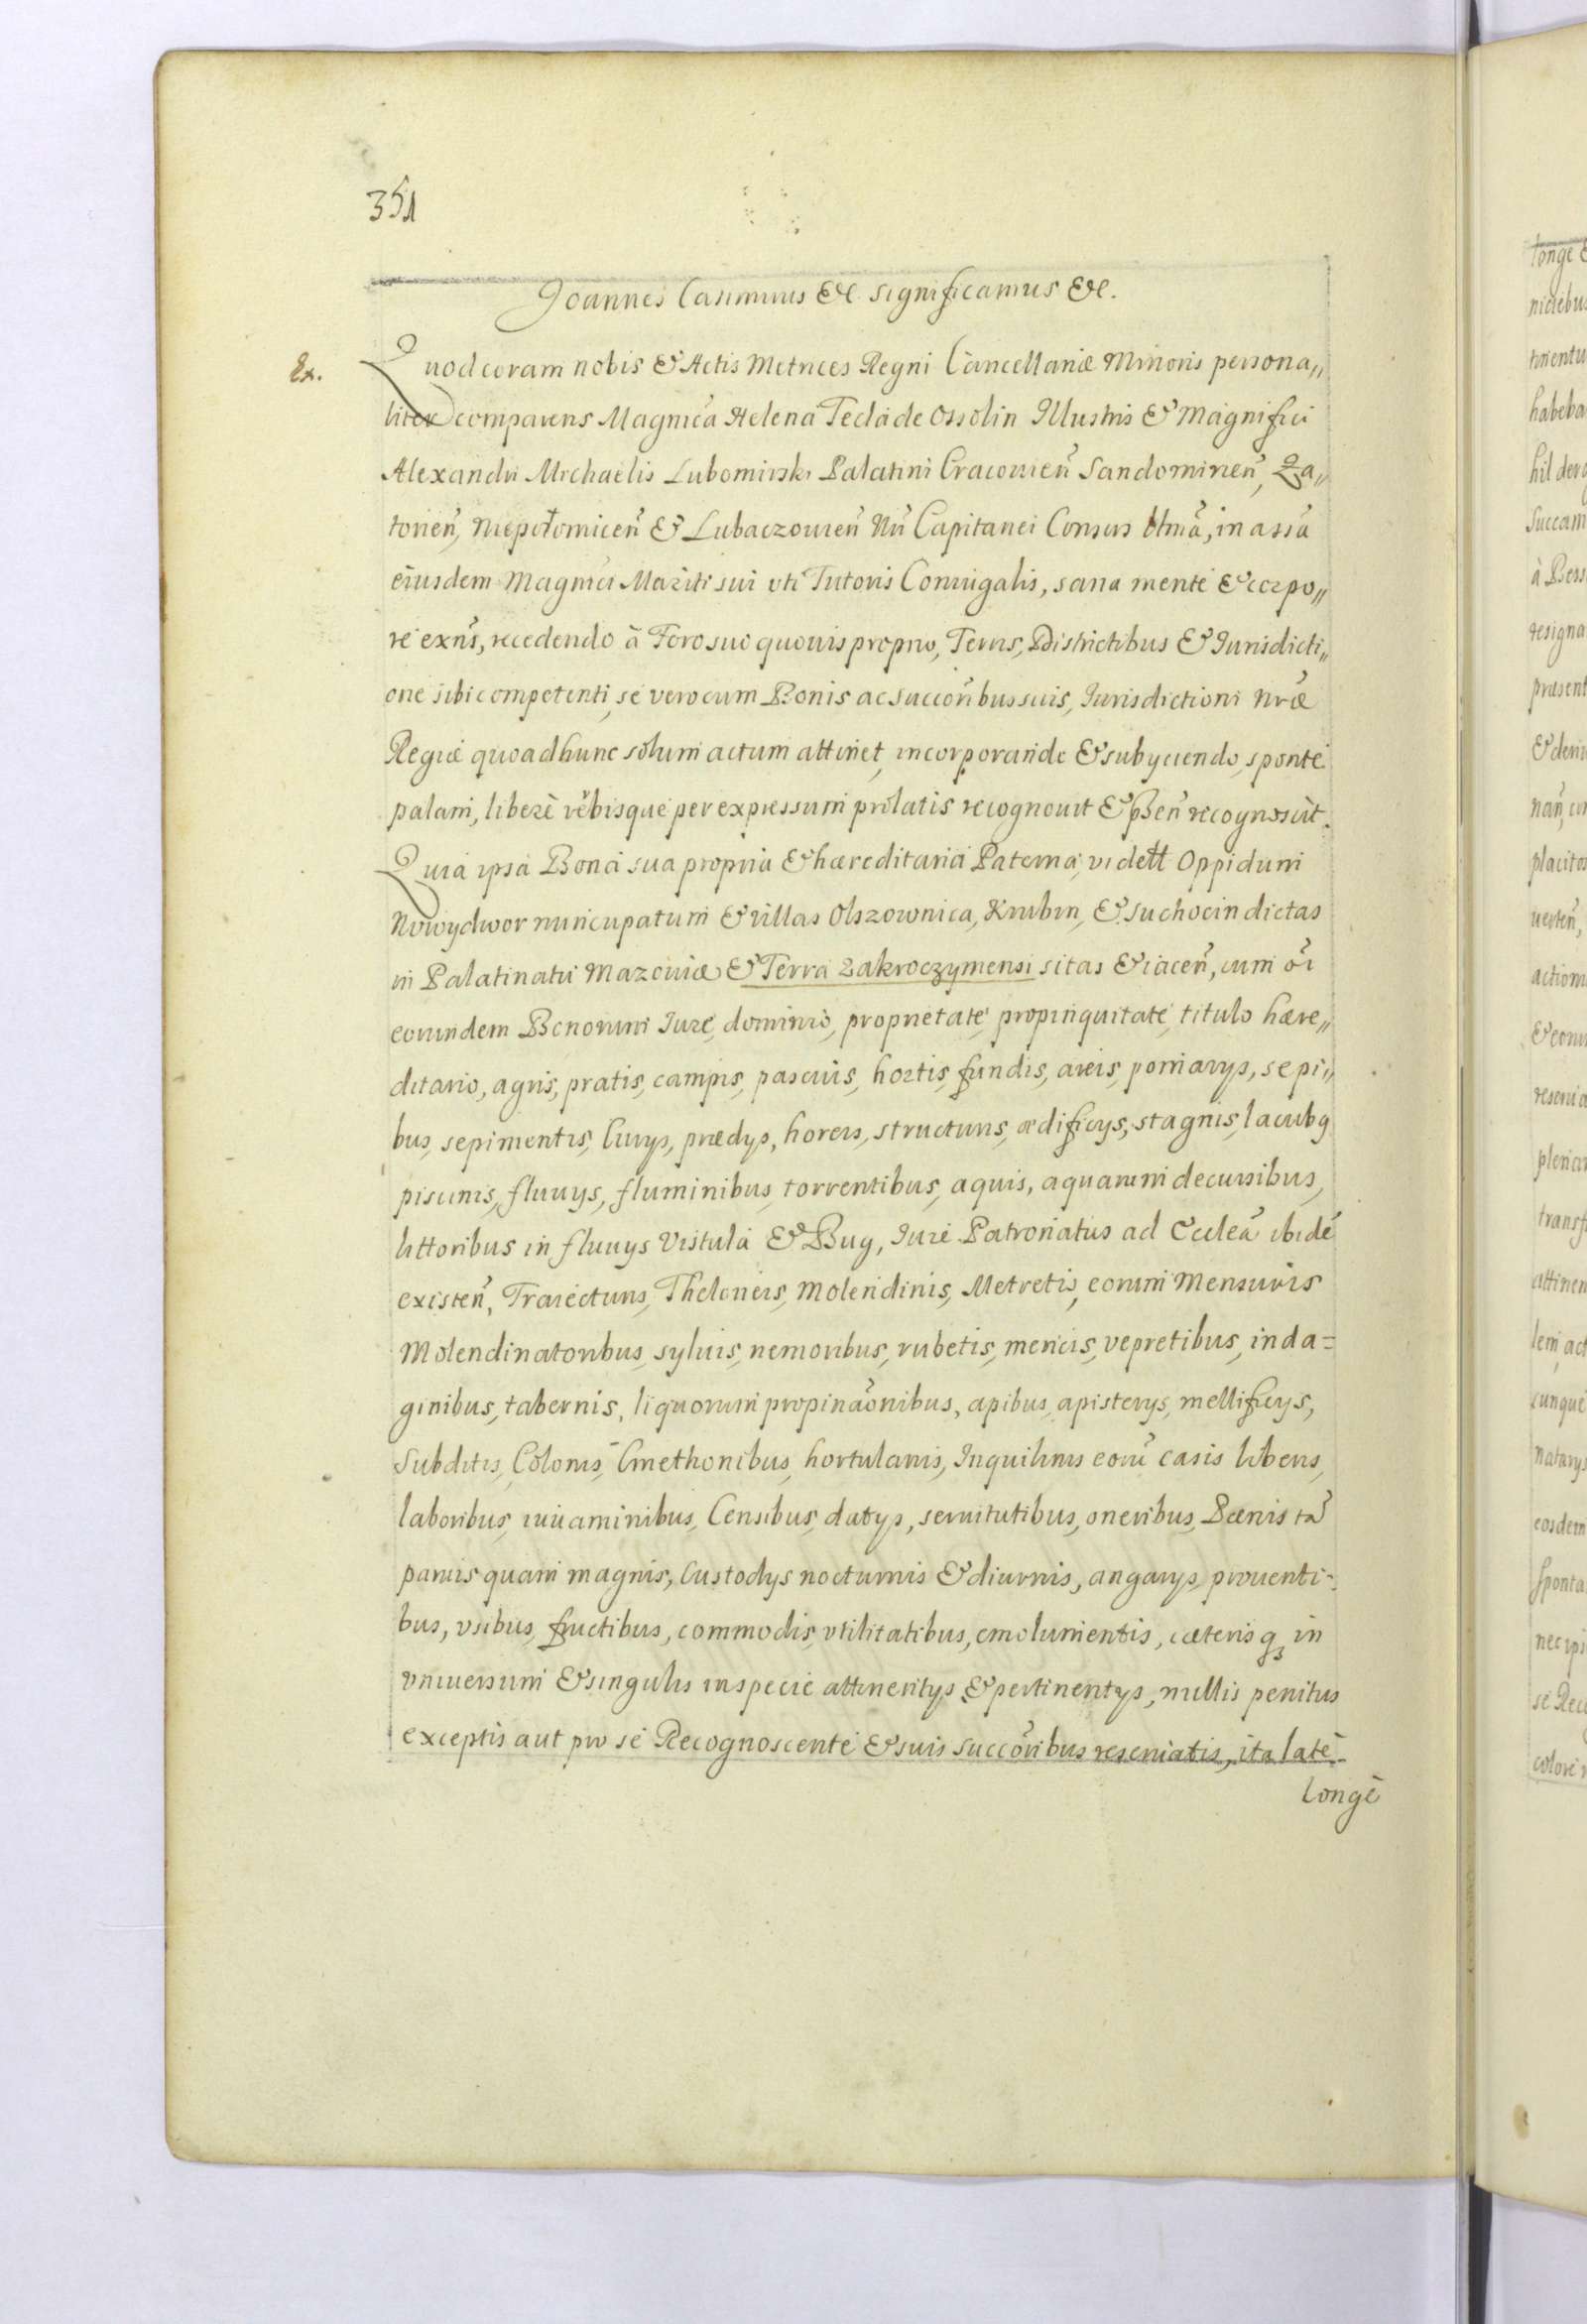 351
Joannes Casimirus &c significamus &c.
Ex.
Quod coram nobis & Actis Metrices Regni Cancellariæ Minoris persona„
liter comparens Magnica Helena Tecla de Ossolin Illustris & Magnifici
Alexandri Michaelis Lubomirski Palatini Cracovien̄ Sandomirien̄, Za„
torien̄, Niepołomicen̄ & Lubaczovien̄ Nr̄i Capitanei Consors Ittma, in assa
eiusdem Magnici Mariti sui uti Tutoris Coniugalis, sana mente & corpo„
re exn̄s, recedendo à Foro suo quovis proprio, Terris, Districtibus & Jurisdicti„
one sibi competenti, se vero cum Bonis ac succor̄ibus suis, Jurisdictioni Nr̄æ
Regiæ quoad hunc solum actum attinet, incorporando & subyciendo, sponte
palam, liberè vēbisque per expressum prolatis recognovit & p̄sen̄ recognoscit.
Quia ipsa Bona sua propria & hæreditaria Paterna, vidett Oppidum
Nowydwor nuncupatum & villas Olszownica, Krubin, & Suchocin dictas
in Palatinatu Mazoviæ & Terra Zakroczymensi sitas & iacen̄, cum ōi
eorundem Bonorum Jure, dominio, proprietate, propinquitate, titulo hære„
ditario, agris, pratis, campis, pascuis, hortis, fundis, areis, pomarys, sepi„
bus, sepimentis, Curys, prædys, horreis, structuris, ædificys, stagnis, lacubq
piscinis, fluvys, fluminibus, torrentibus, aquis, aquarum decursibus,
littoribus in fluvys Vistula & Bug, Jure Patronatus ad Ecclēa ibidē
existen̄, Traiecturis, Theloneis, Molendinis, Metretis, eorum Mensuris
Molendinatoribus, sylvis, nemoribus, rubetis, mericis, vepretibus, inda=
ginibus, tabernis, liquorum propinaōnibus, apibus, apisterys, mellificys,
Subditis, Colonis, Cmethonibus, hortulanis, Inquilinis eorū casis liberis,
laboribus, iuvaminibus, Censibus, datys, servitutibus, oneribus, Pœnis tā
parvis quam magnis, Custodys nocturnis & diurnis, angarys, proventi-
bus, usibus, fructibus, commodis, utilitatibus, emolumentis, cæteris q, in
universum & singulis in specie attinentys & pertinentys, nullis penitus
exceptis aut pro se Recognoscente & suis succōribus reservatis, ita latè
longè